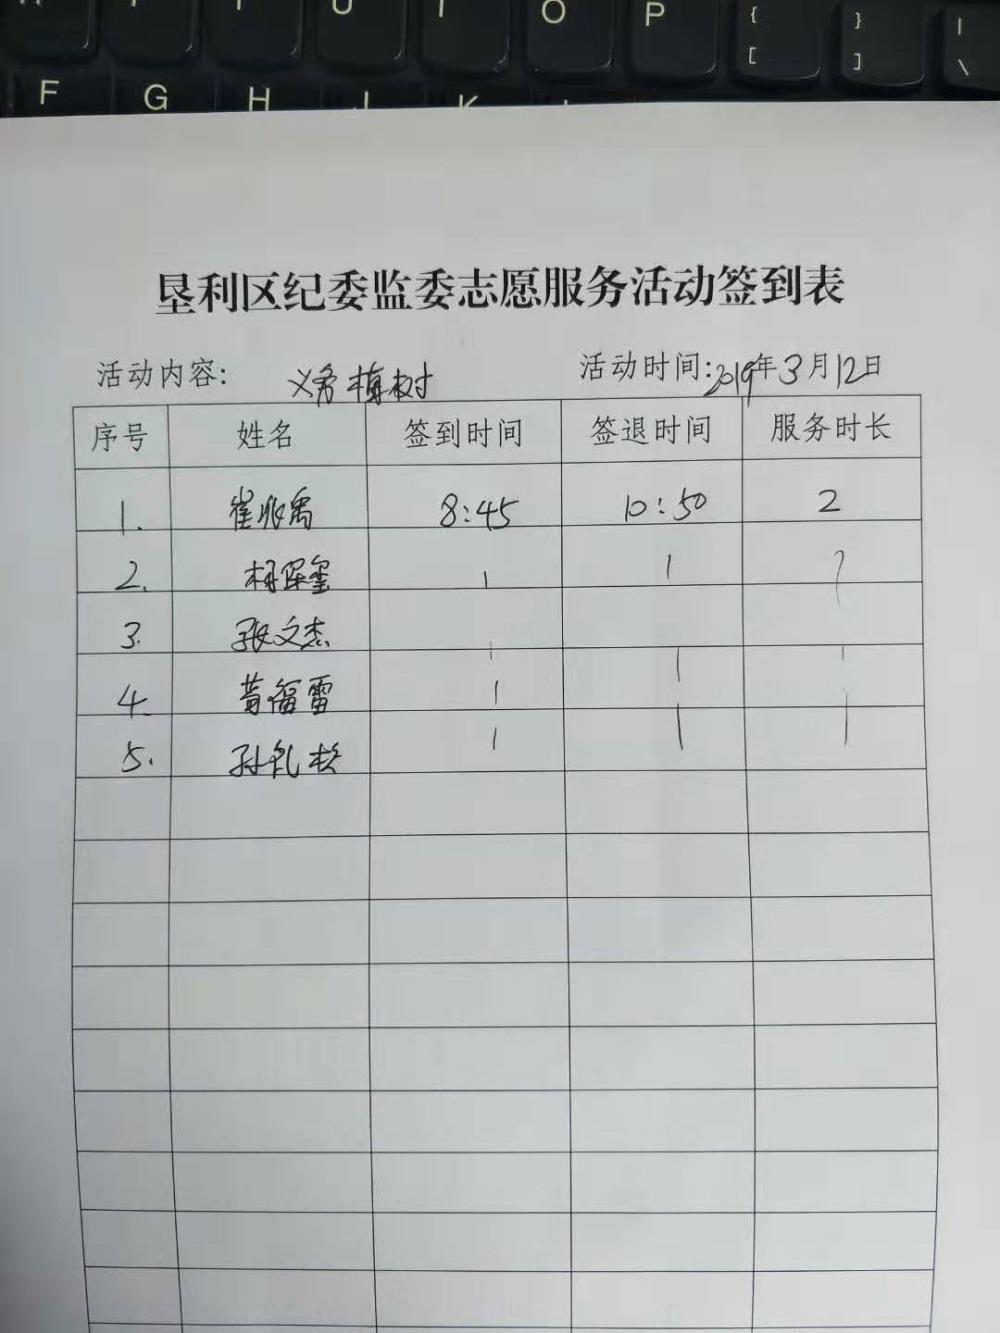 U I O P { [ } ] | \
F G H J K
垦利区纪委监委志愿服务活动签到表
活动内容: 义务植树 活动时间: 2019年3月12日
序号 姓名 签到时间 签退时间 服务时长
1. 崔兆禹 8:45 10:50 2
2.
3. 张文杰
4.
5.